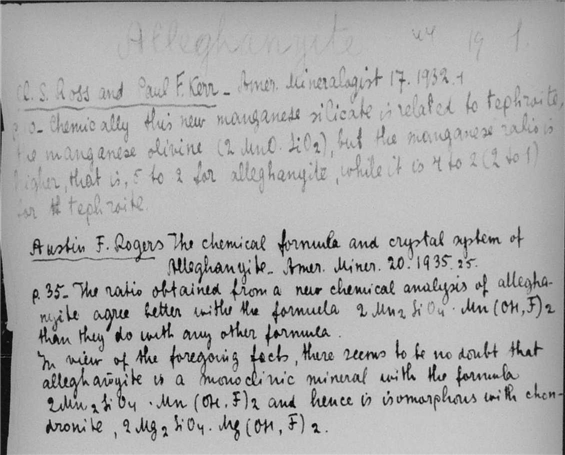 Alleghanyite 19 1.
C. S. Ross and Paul F. Kerr - Amer. Mineralogist 17. 1932. 1
p. 10 - Chemically this new manganese silicate is related to tephroite,
the manganese olivine (2 MnO. SiO2), but the manganese ratio is
higher, that is, 5 to 2 for alleghanyite, while it is 4 to 2 (2 to 1)
for tephroite.
Austin F. Rogers The chemical formula and crystal system of
Alleghanyite - Amer. Miner. 20. 1935. 25.
p. 35 - The ratio obtained from a new chemical analysis of allegha-
nyite agree better with the formula 2 Mn2 SiO4 · Mn (OH, F) 2
than they do with any other formula.
In view of the foregoing facts, there seems to be no doubt that
alleghanyite is a monoclinic mineral with the formula
2 Mn2 SiO4 · Mn (OH, F) 2 and hence is isomorphous with chon-
dronite, 2 Mg2 SiO4 · Mg (OH, F) 2.